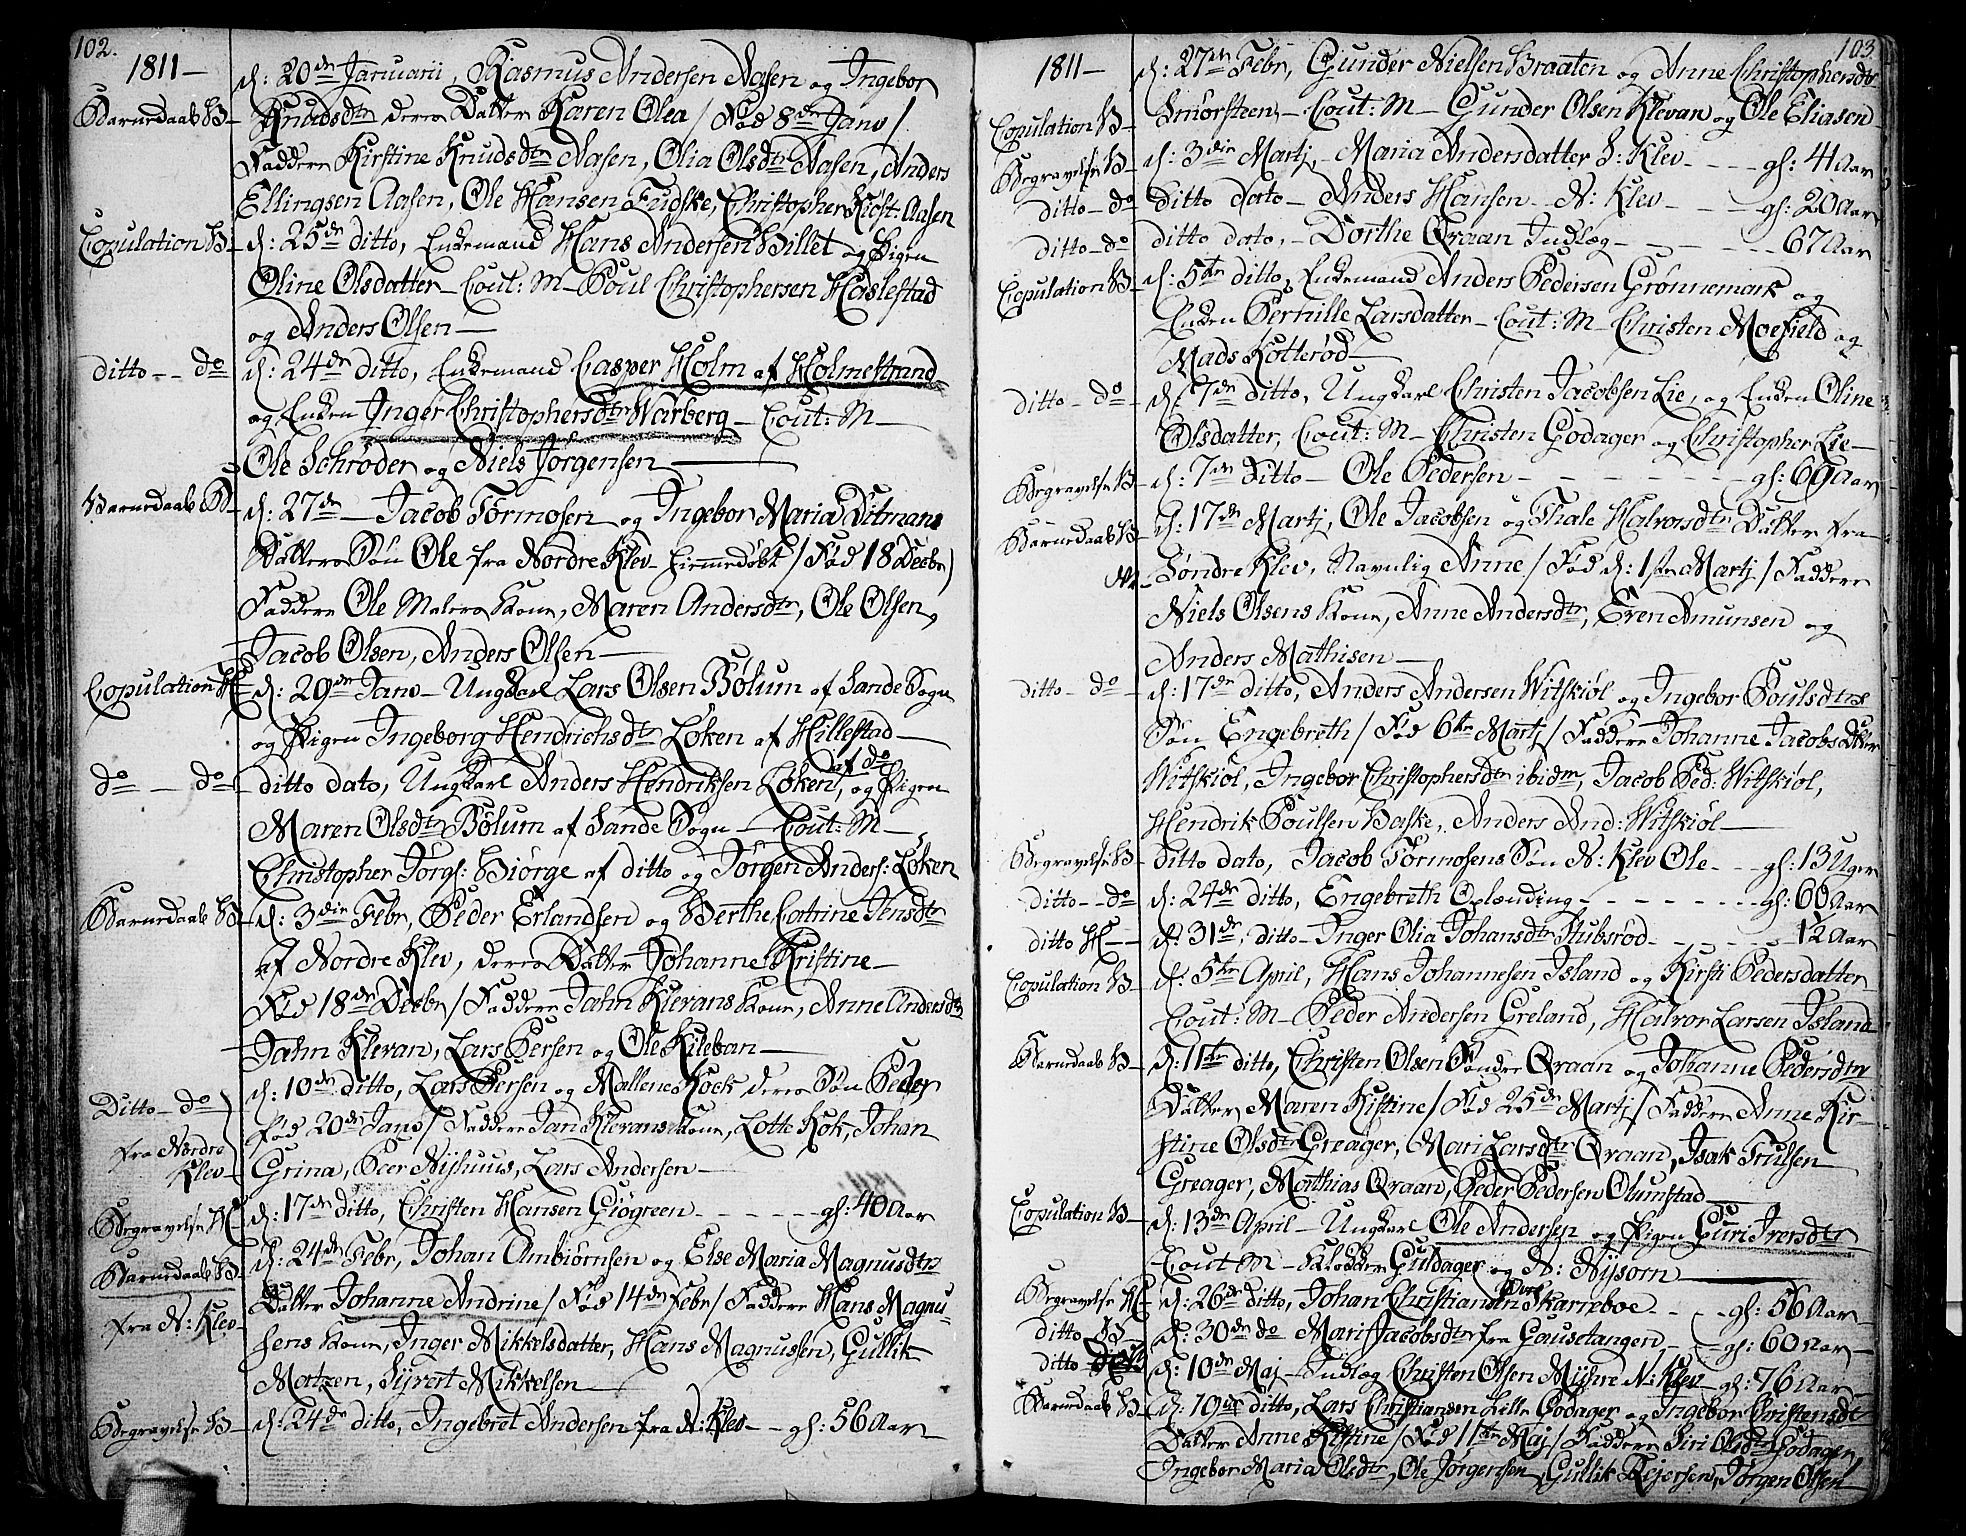 102.
1811-
Barnedaab B- d: 20de Januarii, Rasmus Andersen Aasen og Ingebor
Knudsdtr deres Datter Karen Olea / Fød 8de Janv /
Faddere Kirstine Knudsdtr Aasen, Olia Olsdtr Aasen, Anders
Ellingsen Aasen, Ole Hansen Fudske, Christopher Krist: Aasen
Copulation B- d: 25de ditto, Enkemand Hans Andersen Billet og Pigen
Oline Olsdatter - Cout: M - Poul Christophersen Haslestad
og Anders Olsen-
ditto -- do d: 24de ditto, Enkemand Casper Holm af Holmestrand
og Enken Inger Christophersdtr Warberg - Cout: M -
Ole Schrøder og Niels Jørgensen
Barnedaab B- d: 27de - Jacob Tormosen og Ingebor Maria Ditmans
Datters Søn Ole fra Nordre Klev hiemmedøbt / Fød 18 Decbr /
Faddere Ole Malers Kone, Maren Andersdtr, Ole Olsen,
Jacob Olsen, Anders Olsen-
Copulation H- d: 29de Janv - Ungkarl Lars Olsen Bølum af Sande Sogn
og Pigen Ingeborg Hendrichsdtr Løken af Hillestad-
af do
do - do ditto dato, Ungkarl Anders Hendriksen Løken, og Pigen
Maren Olsdtr Bølum af Sande Sogn - Cout: M -
Christopher Jørgs: Biørge af ditto og Jørgen Anders: Løken
Barnedaab B- d: 3die Febr, Peder Erlandsen og Berthe Catrine Jensdtr
af Nordre Klev, deres Datter Johanne Kristine-
Fød 18de Decbr / Faddere Jahn Klevans Kone, Anne Andersdtr
Jahn Klevan, Lars Persen og Ole Kileban-
Ditto - do d: 10de ditto, Lars Persen og Mallene Kock deres Søn Peder
fra Nordre fød 20de Janv / Faddere Jan Klevans Kone, Lotte Kok, Johan
Klev- Grina, Peer Nyhuus, Lars Andersen-
Begravelse H- d: 17de ditto, Christen Hansen Giøgreen - - - - gl: 40 Aar
Barnedaab B- d: 24de Febr, Johan Ambiørnsen og Else Maria Magnusdtrs
fra N: Klev- Datter Johanne Andrine / Fød 14de Febr / Faddere Hans Magnu-
sens Kone, Inger Mikkelsdatter, Hans Magnussen, Gullik
Matzen, Syvert Mikkelsen-
Begravelse B- d: 24de ditto, Ingebret Andersen fra N: Klev - - gl: 56 Aar
103
1811-
Copulation B- d: 27de Febr, Gunder Nielsen Braaten og Anne Christophersdtr
Smørsteen, - Cout: M - Gunder Olsen Klevan og Ole Eliasen
Begravelse B- d: 3die Martj, Maria Andersdatter S: Klev - - - gl: 41 Aar
ditto - do ditto dato - Anders Hansen - N: Klev - - - gl: 20 Aar
ditto - do ditto dato, - Dorthe Qraan Indlæg - - - - 67 Aar
Copulation B- d: 5te ditto, Enkemand Anders Pedersen Grønnemark og
Enken Pernille Larsdatter - Cout: M - Christen Moefield og
Mads Kotterød-
ditto - do - d: 7de ditto, Ungkarl Christen Jacobsen Lie, og Enken Oline
Olsdatter, Cout: M - Christen Godager og Christopher Lie-
Begravelse B- d: 7de Ditto - Ole Pedersen - - - - - - gl: 69 Aar
Barnedaab B- d: 17de Martj, Ole Jacobsen og Thale Halvorsdtr Datter fra
Søndre Klev, Navnlig Anne / Fød d: 1ste Martj / Faddere
Niels Olsens Kone, Anne Andersdtr, Even Amunsen og
Anders Mathisen-
ditto - do - d: 17de ditto, Anders Andersen Witskiøl og Ingebor Poulsdtrs
Søn Engebreth / Fød 6te Martj / Faddere Johanne Jacobs Datter
Witskiøl, Ingebor Christophersdtr ibidm, Jacob Ped: Witskiøl,
Hendrik Poulsen Baske, Anders And: Witskiøl-
Begravelse B- ditto dato, Jacob Tormosens Søn N: Klev Ole - - gl: 13 Uger
ditto -- do d: 24de ditto, Engebreth Oplænding - - - - - - gl: 60 Aar
ditto H- d: 31de, ditto - Inger Olia Johansdtr Stubsrød - - - - 1/2 Aar
Copulation B- d: 5te April, Hans Johannesen Island og Kirsti Pedersdatter
Cout: M - Peder Andersen Greland, Halvor Larsen Island
Barnedaab B- d: 11te ditto, Christen Olsen Søndre Qraan og Johanne Pedersdtr
Datter Maren Kistine / Fød 25de Martj / Faddere Anne Kir-
stine Olsdtr Greager, Mari Larsdtr Qraan, Isak Trulsen
Greager, Mathias Qraan, Peder Pedersen Olumstad-
Copulation B- d: 13de April - Ungkarl Ole Andersen og Pigen Guri Iversdtr
Cout M - Klokker Guldager og N: Nysom
Begravelse H- d: 26de ditto, Johan Christiansen Skarreboe - - - gl: 56 Aar
ditto B- d: 30de do Mari Jacobsdtr fra Gausetangen, - gl: 60 Aar-
ditto d: 10de Maj - Indlæg Christen Olsen Myhre N: Klev - gl: 76 Aar-
Barnedaab B- d: 19de ditto, Lars Christiansen Lille Godager og Ingebor Christensdtr
Datter Anne Kistine / Fød 11te Maj / Faddere Siri Olsdtr Godager
Ingebor Maria Olsdtr, Ole Jørgensen, Gullik Rejersen, Jørgen Olsen